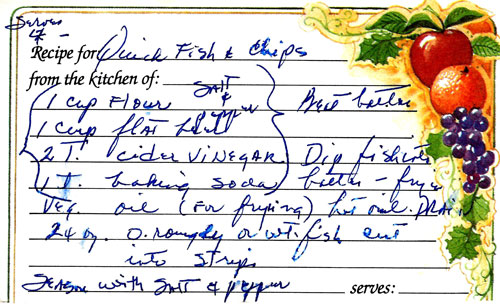 Serves
4 -
Recipe for Quick Fish & Chips
from the kitchen of: SALT
& pepper
1 cup Flour Beat batter
1 cup flat beer
2 T. cider VINEGAR. Dip fish into
1 T. baking soda batter - fry in
Veg. oil (for frying) hot oil. DRAIN
24 oz. o. roughy or wt. fish cut
into strips
Season with Salt & pepper serves: